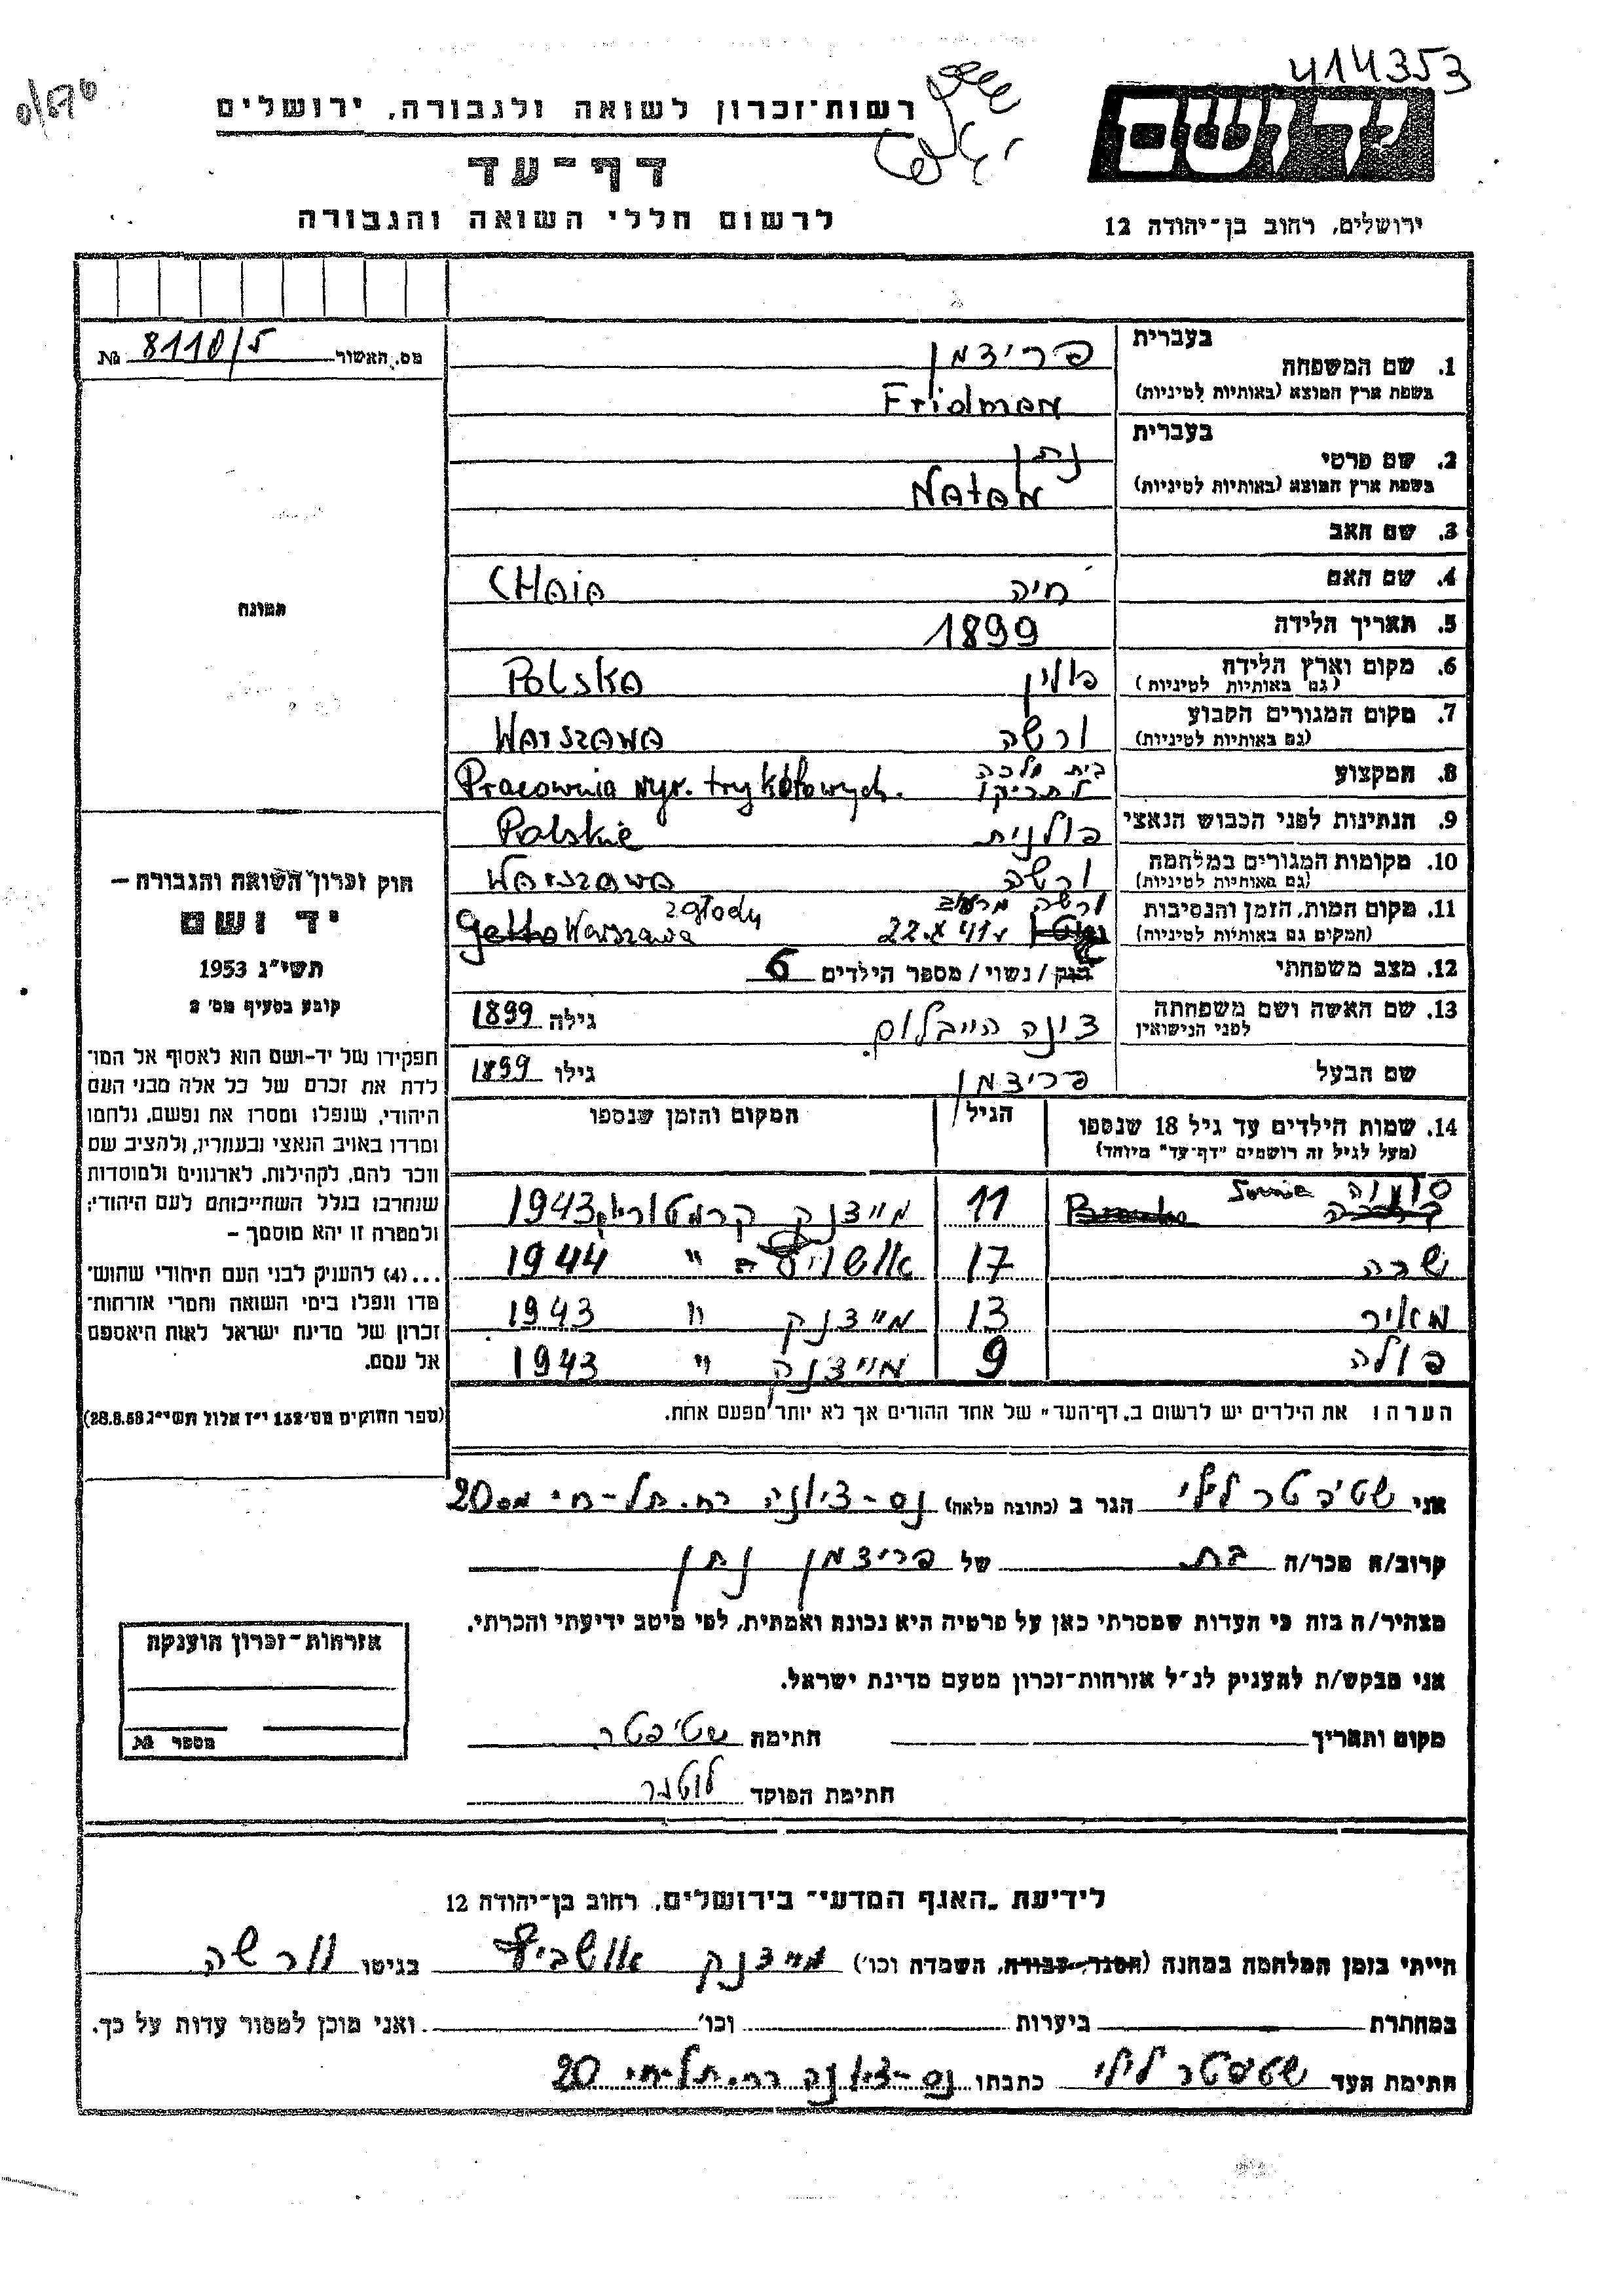 414353
יד ושם
רשות-זכרון לשואה ולגבורה, ירושלים
דף-עד
לרשום חללי השואה והגבורה
ירושלים, רחוב בן-יהודה 12
מס. האשור № 8110/5
בעברית
1. שם המשפחה פרידמן
בשפת ארץ המוצא (באותיות לטיניות) Fridman
בעברית
2. שם פרטי נתן
בשפת ארץ המוצא (באותיות לטיניות) Natan
3. שם האב
4. שם האם חיה CHAIA
5. תאריך הלידה 1899
6. מקום וארץ הלידה פולין Polska
(גם באותיות לטיניות)
7. מקום המגורים הקבוע ורשה Warszawa
(גם באותיות לטיניות)
8. המקצוע בית מלכה לתריקו Pracownia wyr. trykotowych.
9. הנתינות לפני הכבוש הנאצי פולנית Polskie
10. מקומות המגורים במלחמה ורשה Warszawa
(גם באותיות לטיניות)
11. מקום המות, הזמן והנסיבות ורשה מרעב 22.X.41 Getto Warszawa z głody
(המקום גם באותיות לטיניות)
12. מצב משפחתי רווק / נשוי / מספר הילדים 6
13. שם האשה ושם משפחתה דינה הייבלום. גילה 1899
לפני הנישואין
שם הבעל פרידמן גילו 1899
14. שמות הילדים עד גיל 18 שנספו הגיל המקום והזמן שנספו
(מעל לגיל זה רושמים "דף-עד" מיוחד)
סוניה Sonia 11 מיידנק קרמטוריום 1943
שרה 17 אושויץ " 1944
מאיר 13 מיידנק " 1943
פולה 9 מיידנק " 1943
הערה: את הילדים יש לרשום ב"דף-העד" של אחד ההורים אך לא יותר מפעם אחת.
תמונה
חוק זכרון השואה והגבורה –
יד ושם
תשי"ג 1953
קובע בסעיף מס' 2
תפקידו של יד-ושם הוא לאסוף אל המו־
לדת את זכרם של כל אלה מבני העם
היהודי, שנפלו ומסרו את נפשם, נלחמו
ומרדו באויב הנאצי ובעוזריו, ולהציב שם
וזכר להם, לקהילות, לארגונים ולמוסדות
שנחרבו בגלל השתייכותם לעם היהודי;
ולמטרה זו יהא מוסמך –
...(4) להעניק לבני העם היהודי שהוש־
מדו ונפלו בימי השואה והמרי אזרחות־
זכרון של מדינת ישראל לאות היאספם
אל עמם.
(ספר החוקים מס' 132 י"ז אלול תשי"ג 28.8.53)
אני שטיפטר לילי הגר ב (כתובת מלאה) נס-ציונה רח. תל-חי מס 20
קרוב/ה מכר/ה בת של פרידמן נתן
מצהיר/ה בזה כי העדות שמסרתי כאן על פרטיה היא נכונה ואמתית, לפי מיטב ידיעתי והכרתי.
אני מבקש/ת להעניק לנ"ל אזרחות-זכרון מטעם מדינת ישראל.
מקום ותאריך חתימה שטיפטר
חתימת הפוקד
אזרחות-זכרון הוענקה
מספר №
לידיעת "האגף המדעי" בירושלים, רחוב בן-יהודה 12
הייתי בזמן המלחמה במחנה (הסגר, עבודה, השמדה וכו') מיידנק אושביץ בגיטו וורשה
במחתרת ביערות וכו' ואני מוכן למסור עדות על כך.
חתימת העד שטיפטר לילי כתבתו נס-ציונה רח. תל-חי 20